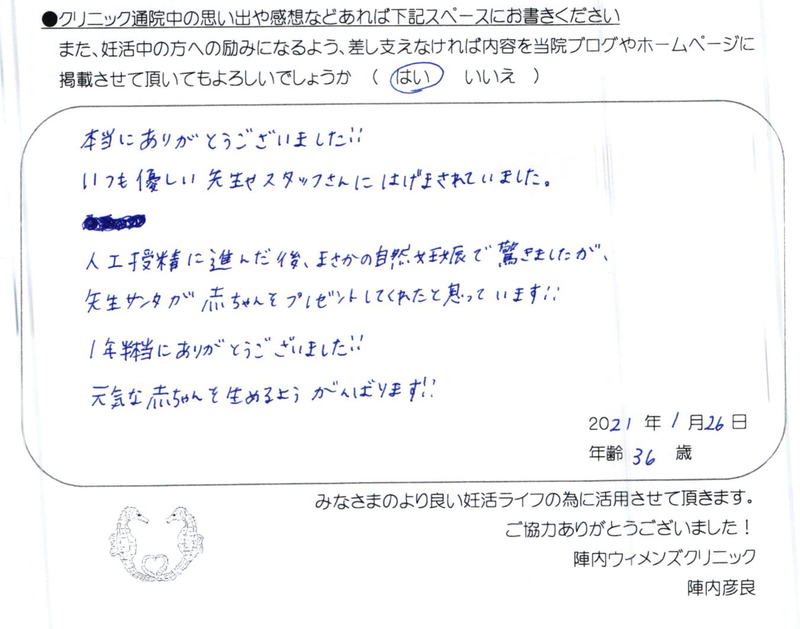 ●クリニック通院中の思い出や感想などあれば下記スペースにお書きください
また、妊活中の方への励みになるよう、差し支えなければ内容を当院ブログやホームページに
掲載させて頂いてもよろしいでしょうか （ はい いいえ ）
本当にありがとうございました!!
いつも優しい先生やスタッフさんにはげまされていました。
人工授精に進んだ後、まさかの自然妊娠で驚きましたが、
先生サンタが赤ちゃんをプレゼントしてくれたと思っています!!
1年半本当にありがとうございました!!
元気な赤ちゃんを生めるようがんばります!!
2021 年 1 月 26 日
年齢 36 歳
みなさまのより良い妊活ライフの為に活用させて頂きます。
ご協力ありがとうございました！
陣内ウィメンズクリニック
陣内彦良